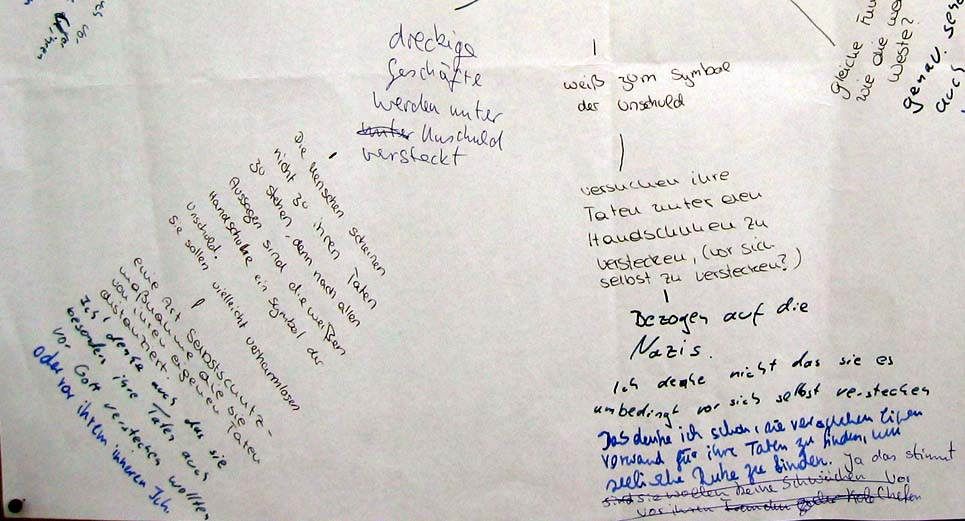 vor
ihren
dreckige
Geschäfte
werden unter
unter Unschuld
versteckt
weiß zum Symbol
der Unschuld
versuchen ihre
Taten unter den
Handschuhen zu
verstecken, (vor sich
selbst zu verstecken?)
Bezogen auf die
Nazis.
Ich denke nicht das sie es
unbedingt vor sich selbst verstecken
Das denke ich schon, sie versuchen einen
vorwand für ihre Taten zu finden, um
seelische Ruhe zu finden. Ja das stimmt
sind sie wollen keine Schwächen vor
vor ihren Chefen
gleiche
wie die we
Weste?
genau.
auch
Die Menschen scheinen
nicht zu ihren Taten
zu stehen, denn nach allen
Aussagen sind die weißen
Handschuhe ein Symbol der
Unschuld.
sie sollen vielleicht verharmlosen
eine Art Selbstschutz-
maßnahme, die sie
von ihren eigenen Taten
distanziert.
Ich denke auch das sie
besonders ihre Taten auch
vor Gott verstecken wollten
Oder vor ihrem inneren Ich.